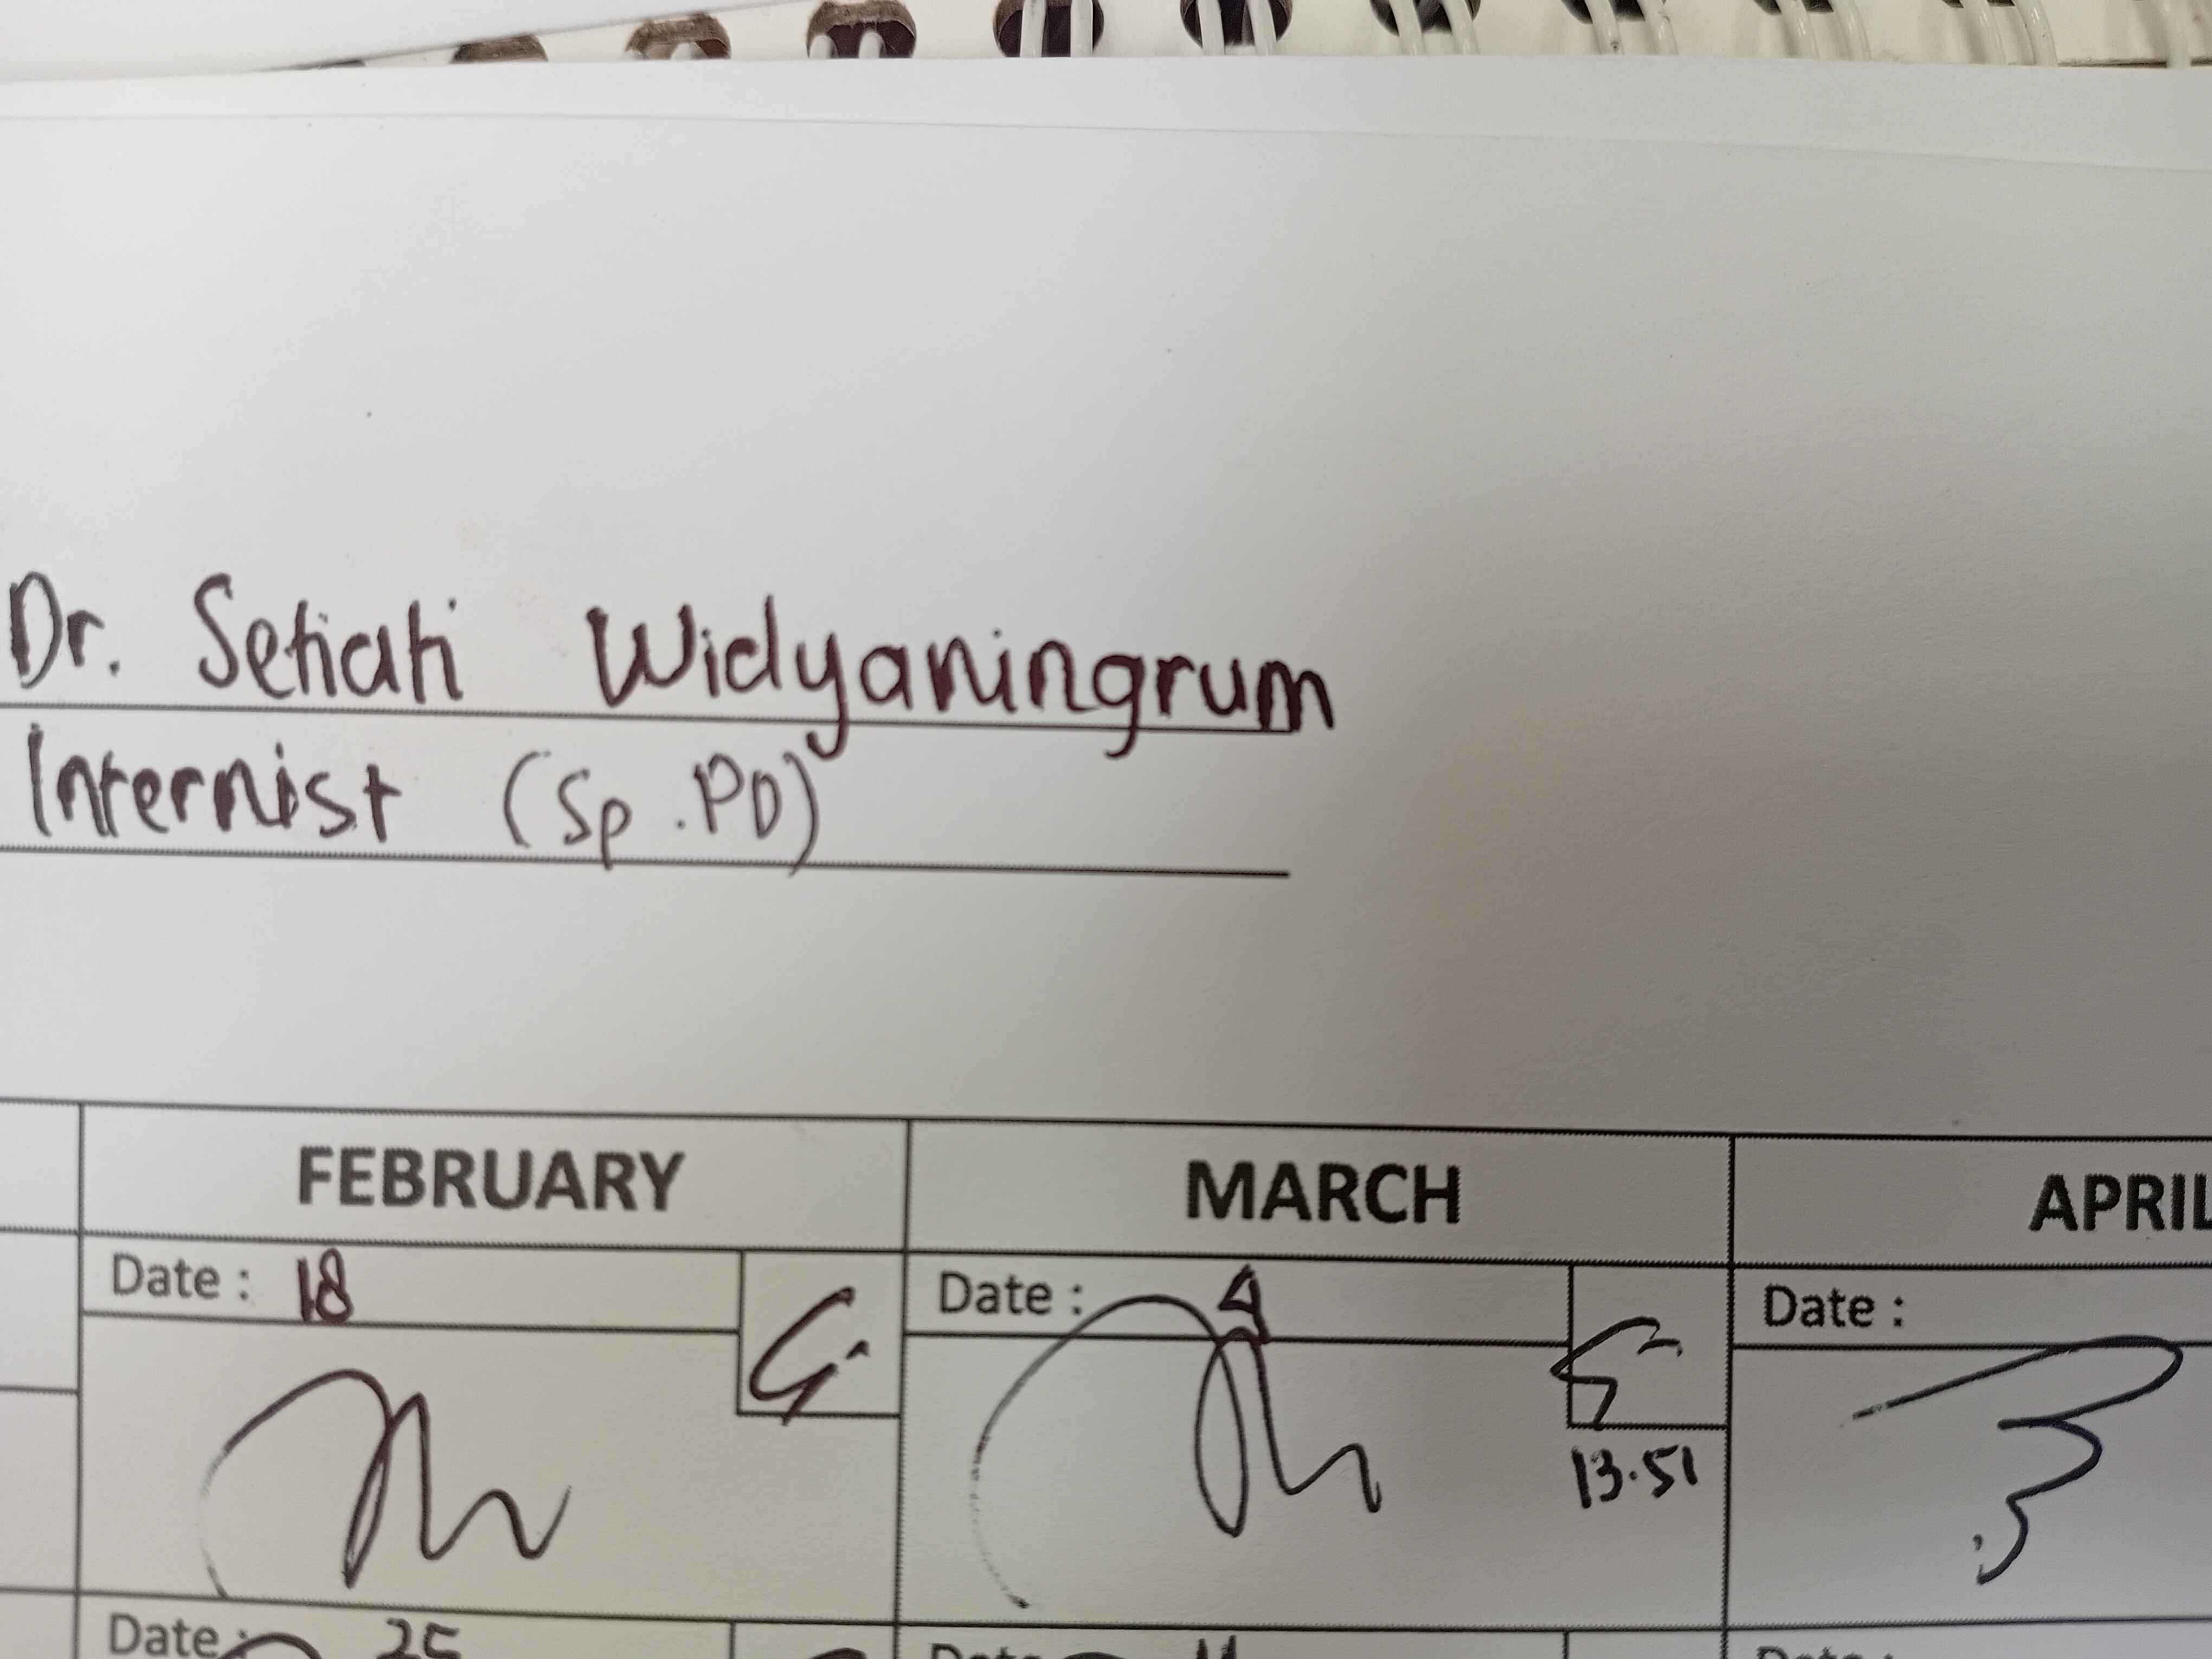 Dr. Setiati Widyaningrum
Internist (Sp.PD)
FEBRUARY MARCH APRIL
Date : 18 Date : 4 Date :
13.51
Date : 25 Date : 11 Date :